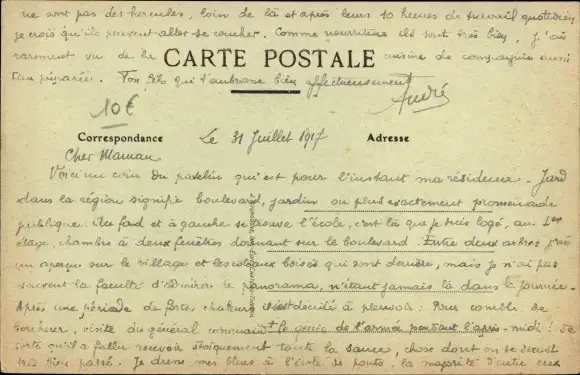 ne sont pas des hercules, loin de là et après leurs 10 heures de travail quotidien
je crois qu'ils peuvent aller se coucher. Comme nourriture ils sont très bien, j'ai
rarement vu de la cuisine de compagnie aussi
bien préparée. Ton fils qui t'embrasse bien affectueusement
CARTE POSTALE
André
10€
Correspondance
Le 31 Juillet 1917
Adresse
Cher Maman
Voici un coin du patelin qui est pour l'instant ma résidence. Jard
dans la région signifie boulevard, jardin ou plus exactement promenade
publique. Au fond et à gauche se trouve l'école, c'est là que je suis logé, au 1er
étage, chambre à deux fenêtres donnant sur le boulevard. Entre deux arbres j'ai
un aperçu sur le village et les coteaux boisés qui sont derrière, mais je n'ai pas
souvent la faculté d'admirer le panorama, n'étant jamais là dans la journée.
Après une période de fortes chaleurs il s'est décidé à pleuvoir. Pour comble de
bonheur, visite du général commant le génie de l'armée pendant l'après-midi ! De
sorte qu'il a fallu recevoir stoïquement toute la sauce, chose dont on se serait
très bien passé. Je dresse mes bleus à l'école de ponts, la majorité d'entre eux